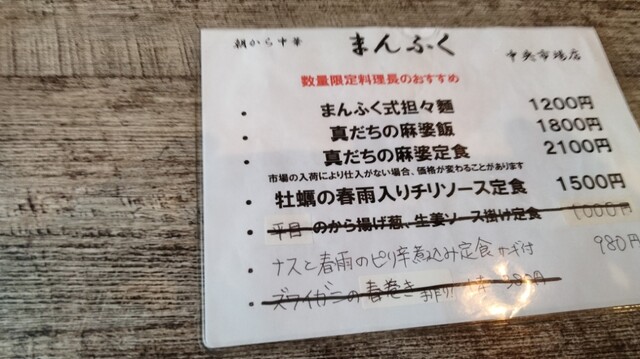 朝から中華 まんふく 中央市場店
数量限定料理長のおすすめ
・ まんふく式担々麺 1200円
・ 真だちの麻婆飯 1800円
・ 真だちの麻婆定食 2100円
市場の入荷により仕入がない場合、価格が変わることがあります
・ 牡蠣の春雨入りチリソース定食 1500円
・ 平目のから揚げ葱、生姜ソース掛け定食 1000円
・ ナスと春雨のピリ辛煮込み定食 980円
・ ズワイガニの春巻き 手作り!